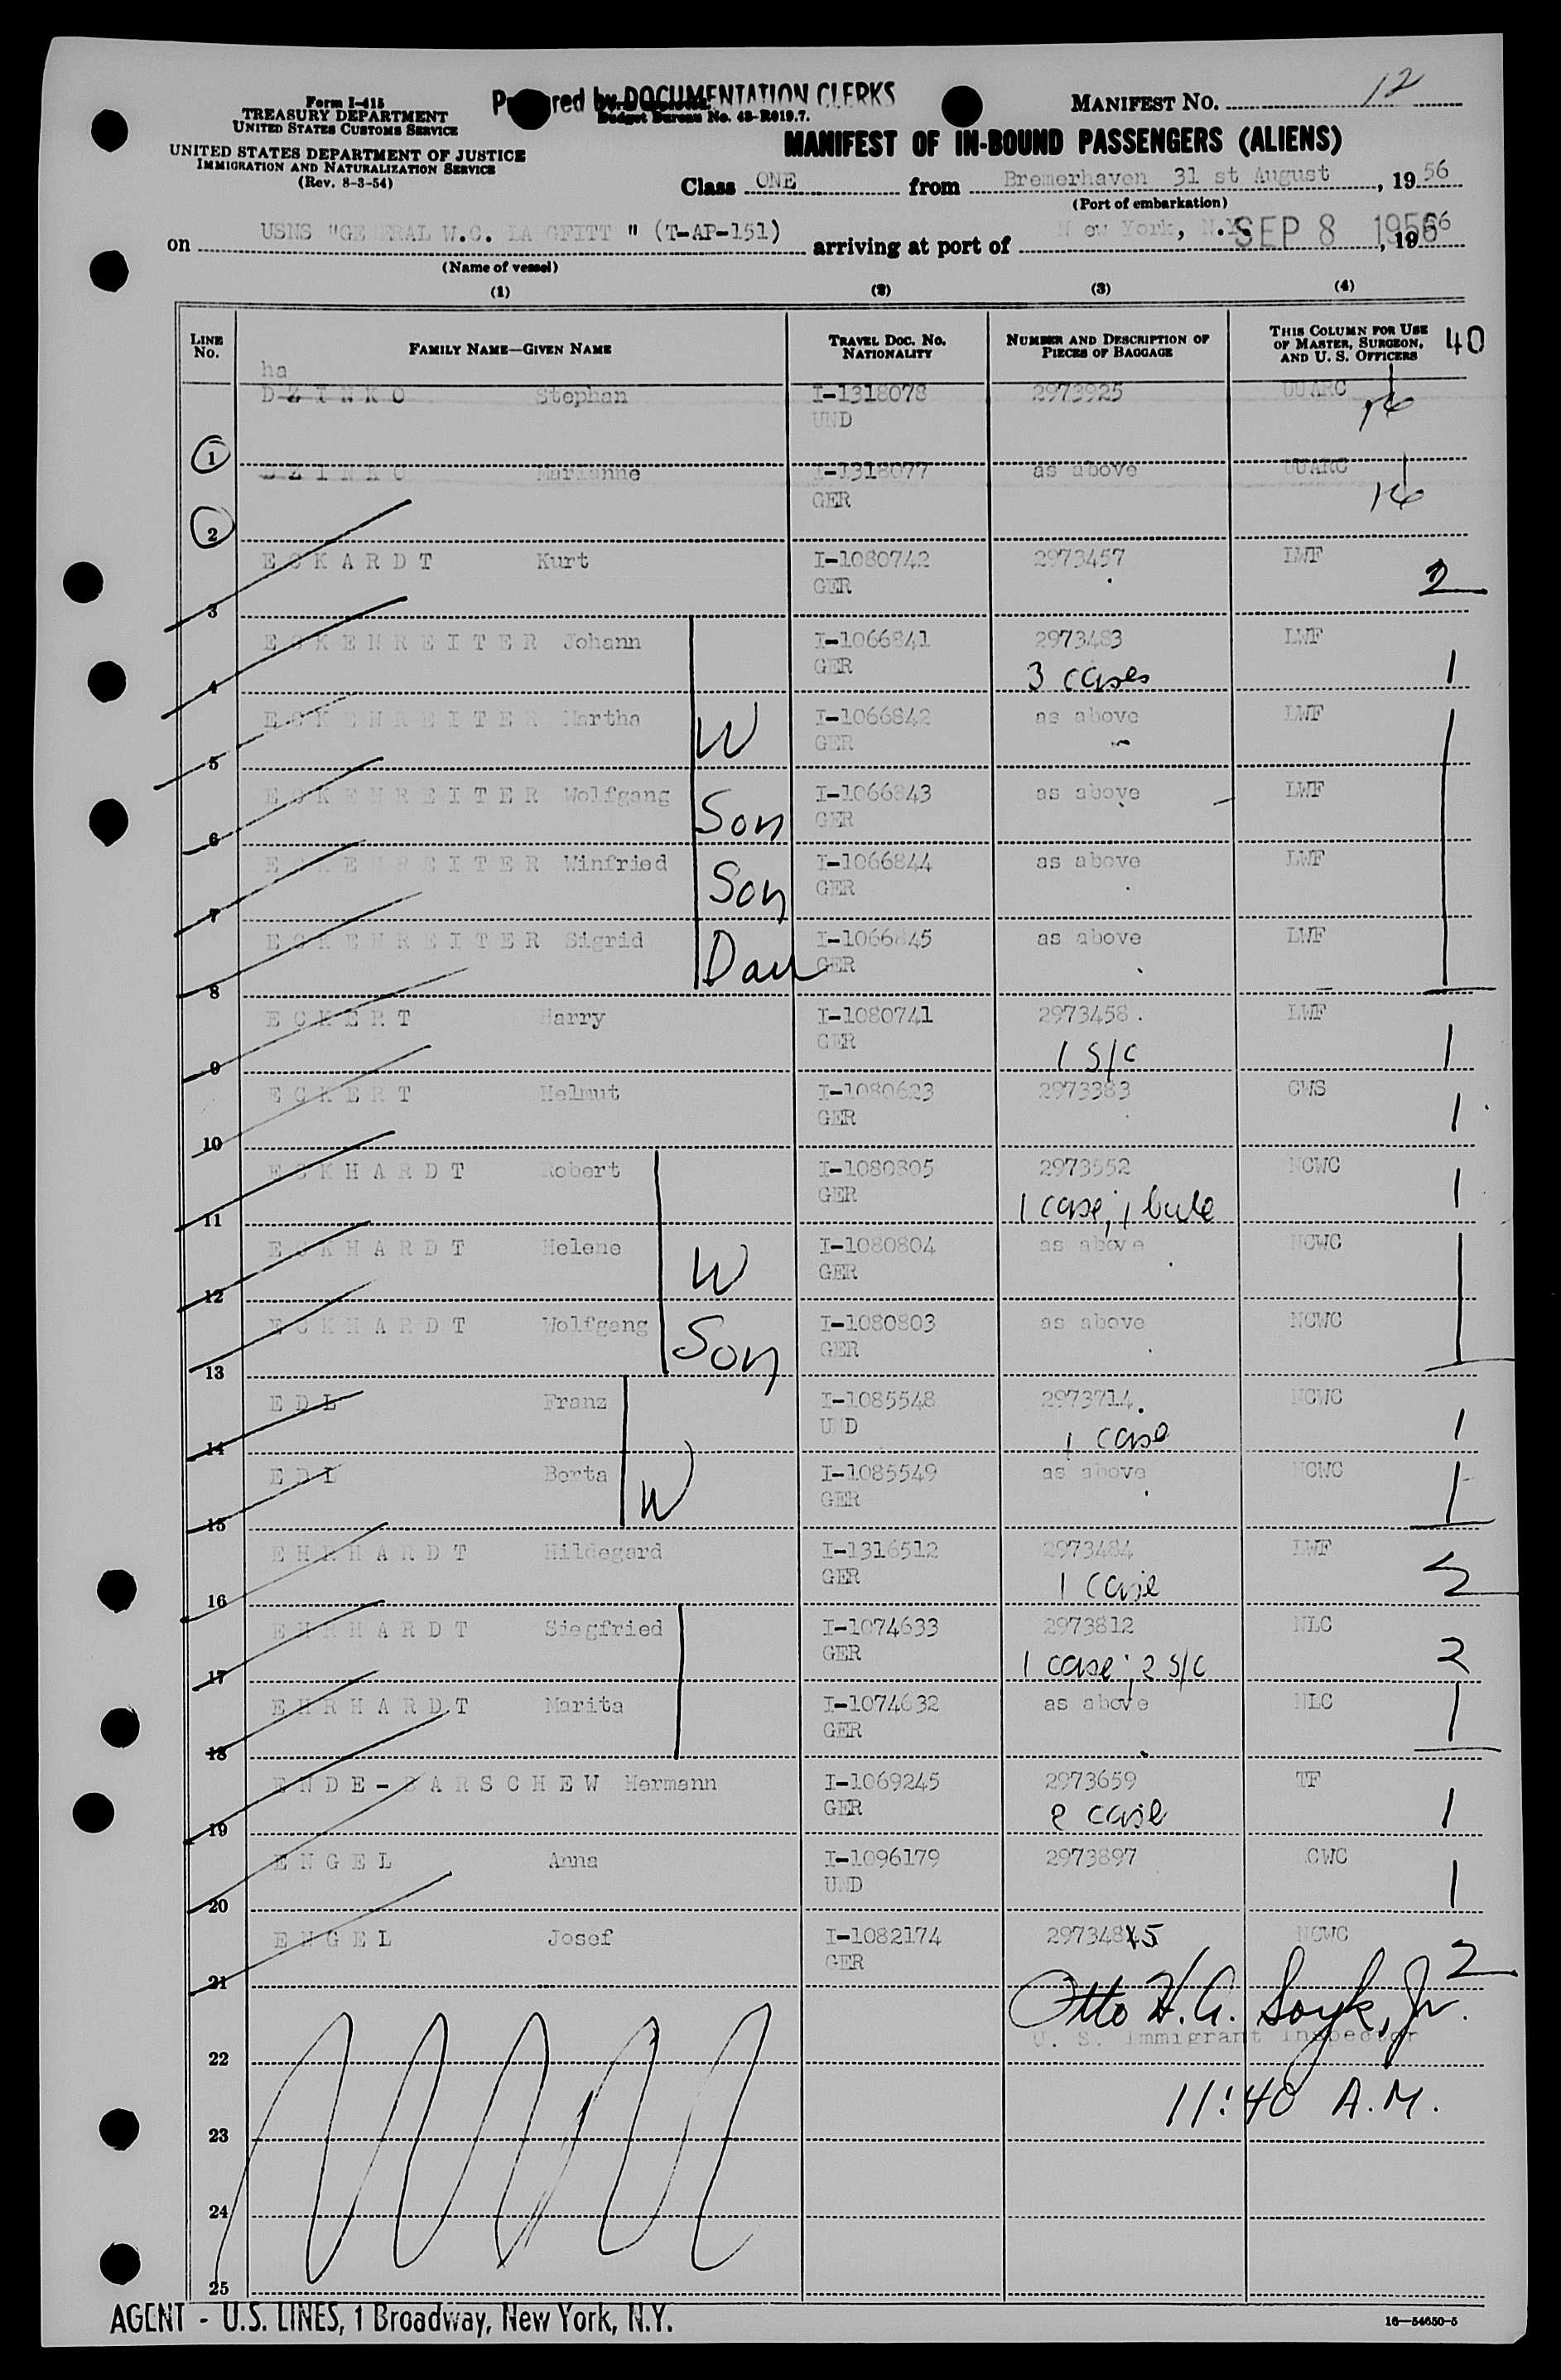 Form I-415
TREASURY DEPARTMENT
UNITED STATES CUSTOMS SERVICE
UNITED STATES DEPARTMENT OF JUSTICE
IMMIGRATION AND NATURALIZATION SERVICE
(Rev. 8-3-54)
Prepared by DOCUMENTATION CLERKS
Budget Bureau No. 43-R019.7.
MANIFEST NO. 12
MANIFEST OF IN-BOUND PASSENGERS (ALIENS)
Class ONE from Bremerhaven 31 st August, 1956
(Port of embarkation)
on USNS "GENERAL W.C. LANGFITT " (T-AP-151) arriving at port of New York, N.Y. SEP 8 1956, 1956
(Name of vessel)
(1) (2) (3) (4)
LINE No. FAMILY NAME—GIVEN NAME TRAVEL DOC. NO. NATIONALITY NUMBER AND DESCRIPTION OF PIECES OF BAGGAGE THIS COLUMN FOR USE OF MASTER, SURGEON, AND U. S. OFFICERS 40
ha
DZINKO Stephan I-1318078 2973925 UUARC
UND
1
DZINKO Marianne I-1318077 as above UUARC
GER
2
ECKARDT Kurt I-1080742 2973457 LWF
GER 2
3
ECKENREITER Johann I-1066841 2973483 LWF
GER 3 cases 1
4
ECKENREITER Martha W I-1066842 as above LWF
GER
5
ECKENREITER Wolfgang Son I-1066843 as above LWF
GER
6
ECKENREITER Winfried Son I-1066844 as above LWF
GER
7
ECKENREITER Sigrid Dau I-1066845 as above LWF
GER
8
ECKERT Harry I-1080741 2973458 . LWF
GER 1 S/C 1
9
ECKERT Helmut I-1080623 2973383 CWS
GER 1
10
ECKHARDT Robert I-1080805 2973552 NCWC
GER 1 case; 1 1
11
ECKHARDT Helene W I-1080804 as above NCWC
GER
12
ECKHARDT Wolfgang Son I-1080803 as above NCWC
GER
13
EDL Franz I-1085548 2973714. NCWC
UND 1 case 1
14
EDL Berta W I-1085549 as above NCWC
GER
15
EHRHARDT Hildegard I-1316512 2973484 LWF
GER 1 case
16
EHRHARDT Siegfried I-1074633 2973812 NLC
GER 1 case; 2 S/C 2
17
EHRHARDT Marita I-1074632 as above NLC
GER
18
ENDE-BARSCHEW Hermann I-1069245 2973659 TF
GER 2 case 1
19
ENGEL Anna I-1096179 2973897 NCWC
UND 1
20
ENGEL Josef I-1082174 2973485 NCWC
GER 2
21
Otto H.G. Soyk, Jr.
U. S. Immigrant Inspector
22
11:40 A.M.
23
24
25
AGENT - U.S. LINES, 1 Broadway, New York, N.Y.
16—54650-5